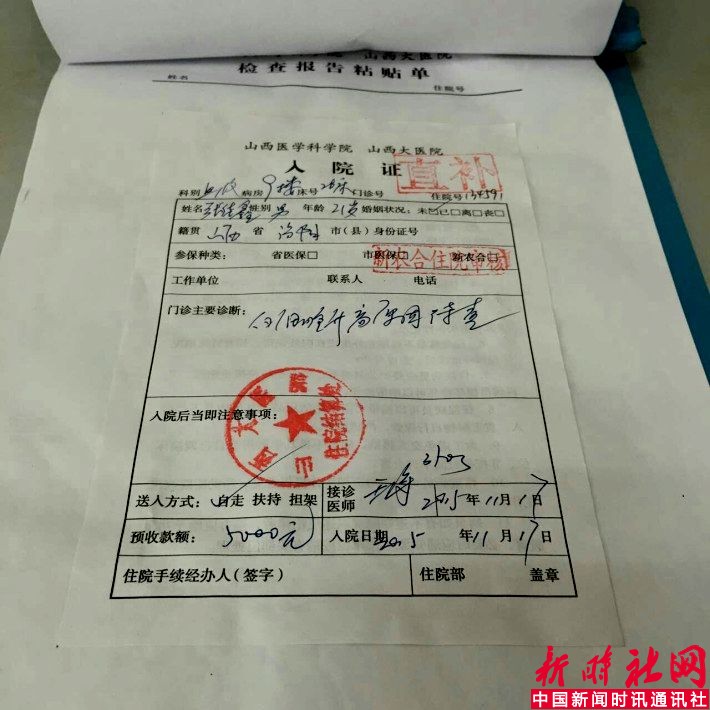 山西大医院
检查报告粘贴单
姓名 住院号
山西医学科学院 山西大医院
入院证
直补
科别 病房 9楼 床号 门诊号 住院号 134591
姓名 性别 男 年龄 21岁 婚姻状况：未□已□离□丧□
籍贯 山西 省 市（县）身份证号
参保种类： 省医保□ 市医保□ 新农合□
新农合住院审核
工作单位 联系人 电话
门诊主要诊断： 白细胞升高原因待查
入院后当即注意事项：
山西大医院
住院结算处
送入方式： 自走 扶持 担架 接诊医师 2015年11月17日
预收款额： 5000元 入院日期 2015 年11月17日
住院手续经办人（签字） 住院部 盖章
新时社网
中国新闻时讯通讯社